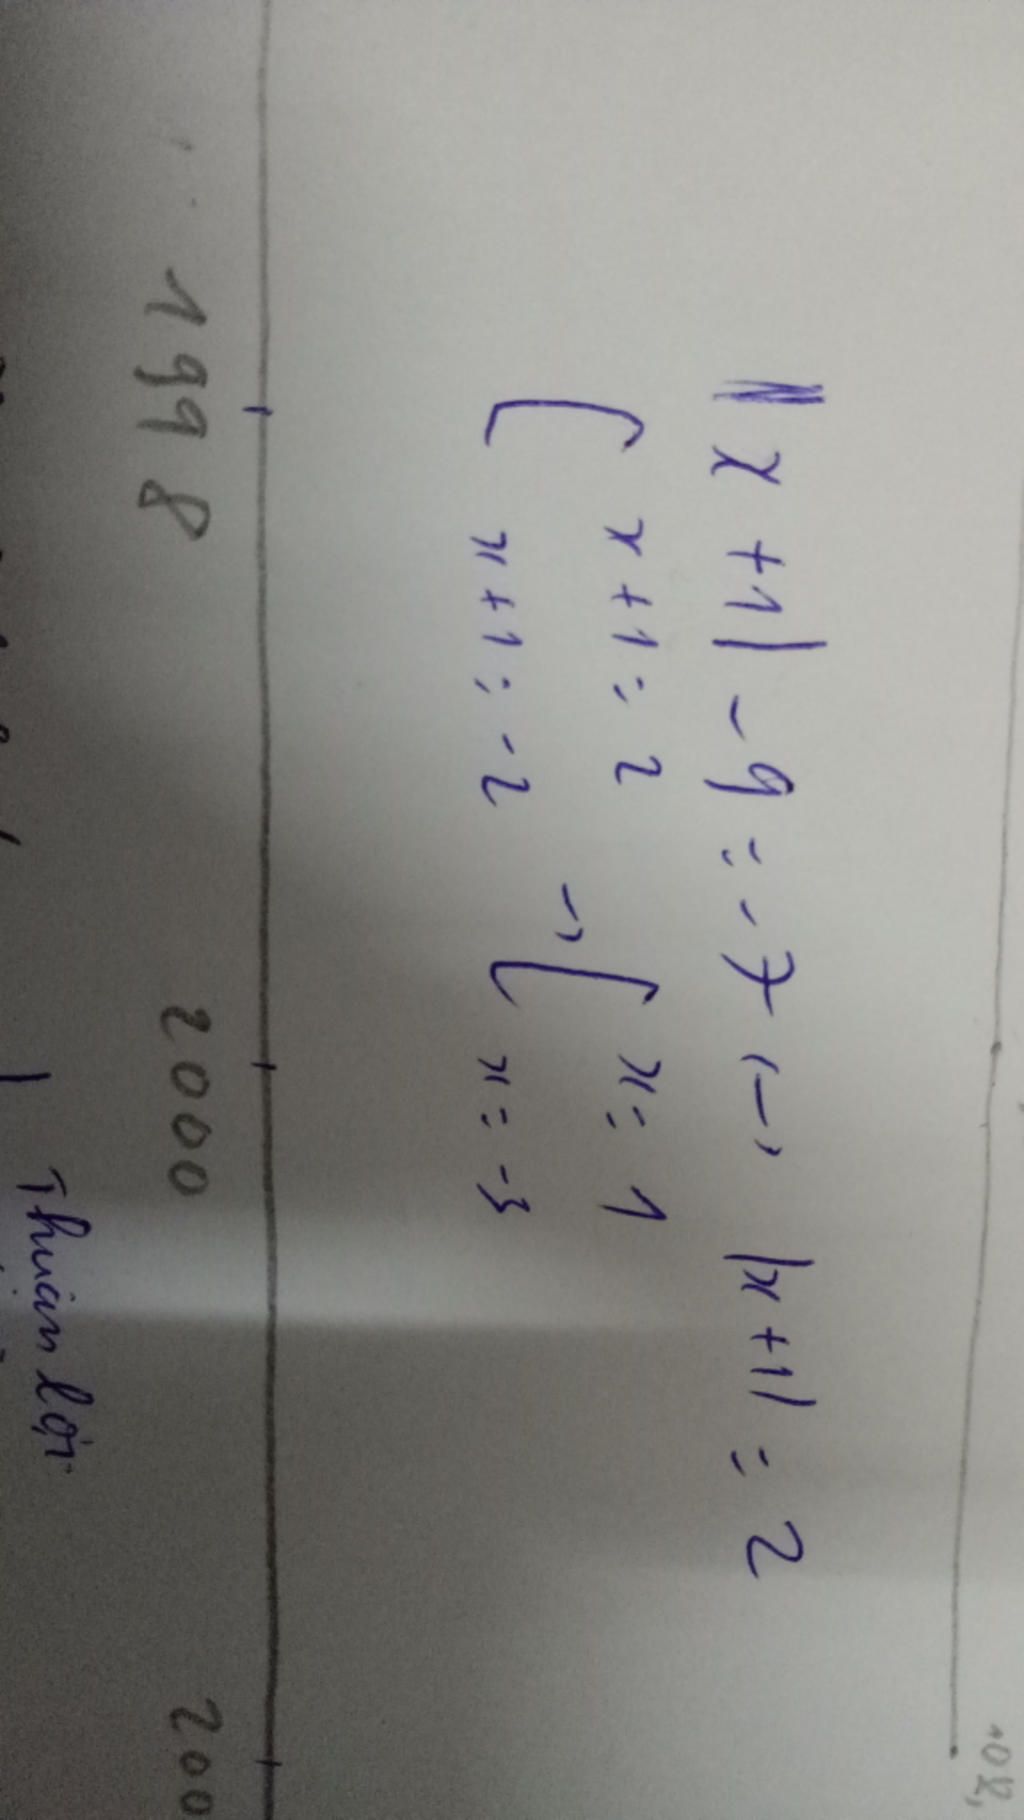 |x+1| - 9 = -7 <-> |x+1| = 2
[ x+1 = 2
x+1 = -2
-> [ x = 1
x = -3
1998 2000 200
Thuận lợi